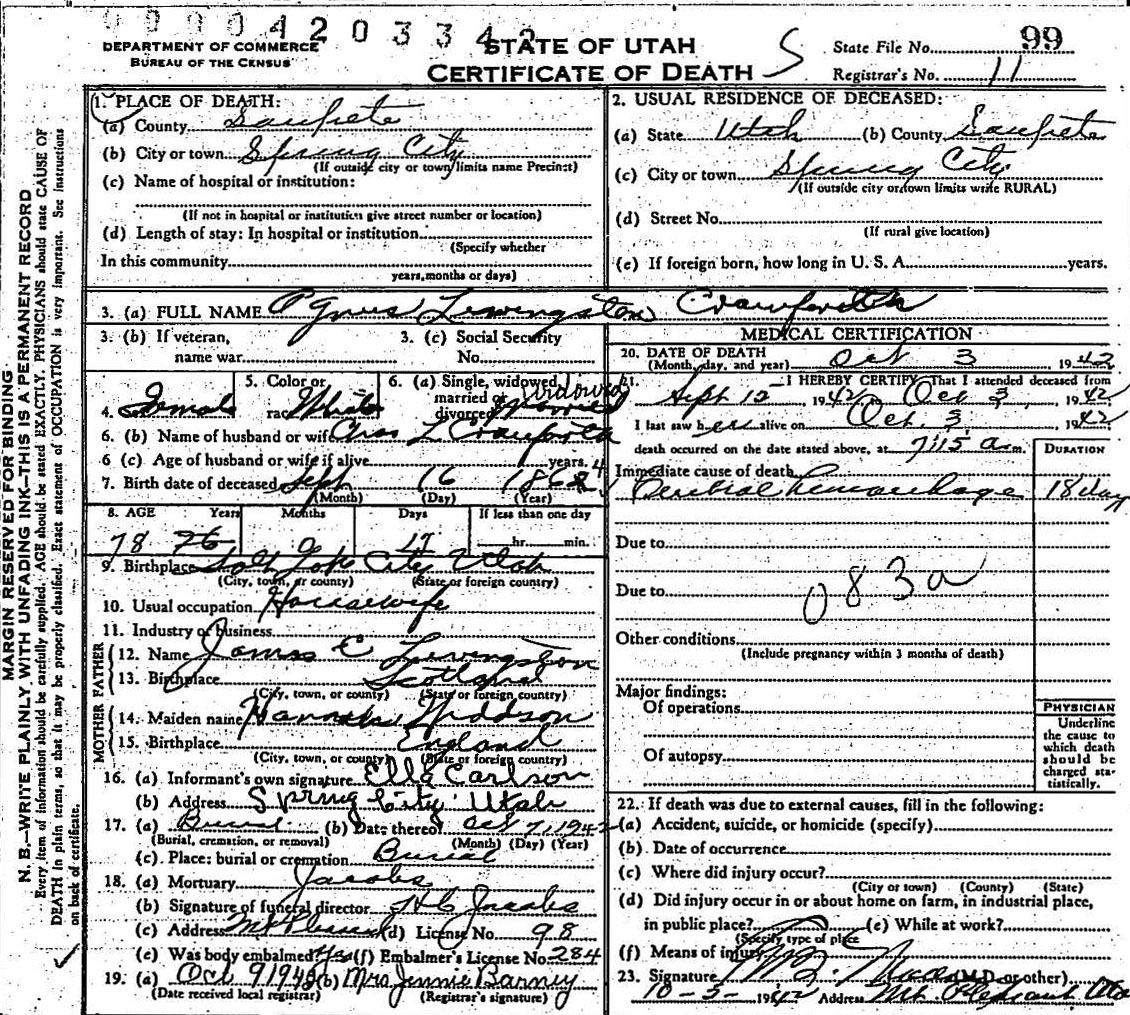 DEPARTMENT OF COMMERCE
BUREAU OF THE CENSUS
STATE OF UTAH
CERTIFICATE OF DEATH
S
State File No. 99
Registrar's No. 11
MARGIN RESERVED FOR BINDING
N. B.—WRITE PLAINLY, WITH UNFADING INK—THIS IS A PERMANENT RECORD
Every item of information should be carefully supplied. AGE should be stated EXACTLY. PHYSICIANS should state CAUSE OF
DEATH in plain terms, so that it may be properly classified. Exact statement of OCCUPATION is very important. See instructions
on back of certificate.
1. PLACE OF DEATH:
(a) County Sanpete
(b) City or town Spring City
(If outside city or town limits name Precinct)
(c) Name of hospital or institution:
(If not in hospital or institution give street number or location)
(d) Length of stay: In hospital or institution
(Specify whether
In this community
years, months or days)
2. USUAL RESIDENCE OF DECEASED:
(a) State Utah (b) County Sanpete
(c) City or town Spring City
(If outside city or town limits write RURAL)
(d) Street No.
(If rural give location)
(e) If foreign born, how long in U. S. A. years.
3. (a) FULL NAME Agnes Livingston Crawforth
3. (b) If veteran,
name war
3. (c) Social Security
No.
4. Female
5. Color or
race White
6. (a) Single, widowed,
married or
divorced widowed
married
6. (b) Name of husband or wife Chas L Crawforth
6 (c) Age of husband or wife if alive years.
7. Birth date of deceased Sept 16 186 4
(Month) (Day) (Year)
8. AGE Years Months Days If less than one day
78 76 0 17 hr. min.
9. Birthplace Salt Lake City Utah
(City, town, or county) (State or foreign country)
10. Usual occupation Housewife
11. Industry or business
FATHER
12. Name James C Livingston
13. Birthplace Scotland
(City, town, or county) (State or foreign country)
MOTHER
14. Maiden name Hannah
15. Birthplace England
(City, town, or county) (State or foreign country)
16. (a) Informant's own signature Ella Carlson
(b) Address Spring City Utah
17. (a) Burial (b) Date thereof Oct 7, 1942
(Burial, cremation, or removal) (Month) (Day) (Year)
(c) Place: burial or cremation Burial
18. (a) Mortuary Jacobs
(b) Signature of funeral director H C Jacobs
(c) Address Mt Pleasant (d) License No. 98
(e) Was body embalmed? Yes (f) Embalmer's License No. 284
19. (a) Oct 9 1942 (b) Mrs Jennie Barney
(Date received local registrar) (Registrar's signature)
MEDICAL CERTIFICATION
20. DATE OF DEATH
(Month, day, and year) Oct 3 1942
21. I HEREBY CERTIFY, That I attended deceased from
Sept 12, 1942 Oct 3, 1942
I last saw her alive on Oct. 3, 1942
death occurred on the date stated above, at 7:15 a m. DURATION
Immediate cause of death
Cerebral hemorrhage 18 day
Due to
Due to
083a
Other conditions
(Include pregnancy within 3 months of death)
Major findings:
Of operations
Of autopsy
PHYSICIAN
Underline
the cause to
which death
should be
charged sta-
tistically.
22. If death was due to external causes, fill in the following:
(a) Accident, suicide, or homicide (specify)
(b) Date of occurrence
(c) Where did injury occur?
(City or town) (County) (State)
(d) Did injury occur in or about home on farm, in industrial place,
in public place? (e) While at work?
(Specify type of place
(f) Means of injury
23. Signature (M.D. or other)
10-5-1942 Address Mt. Pleasant Uta